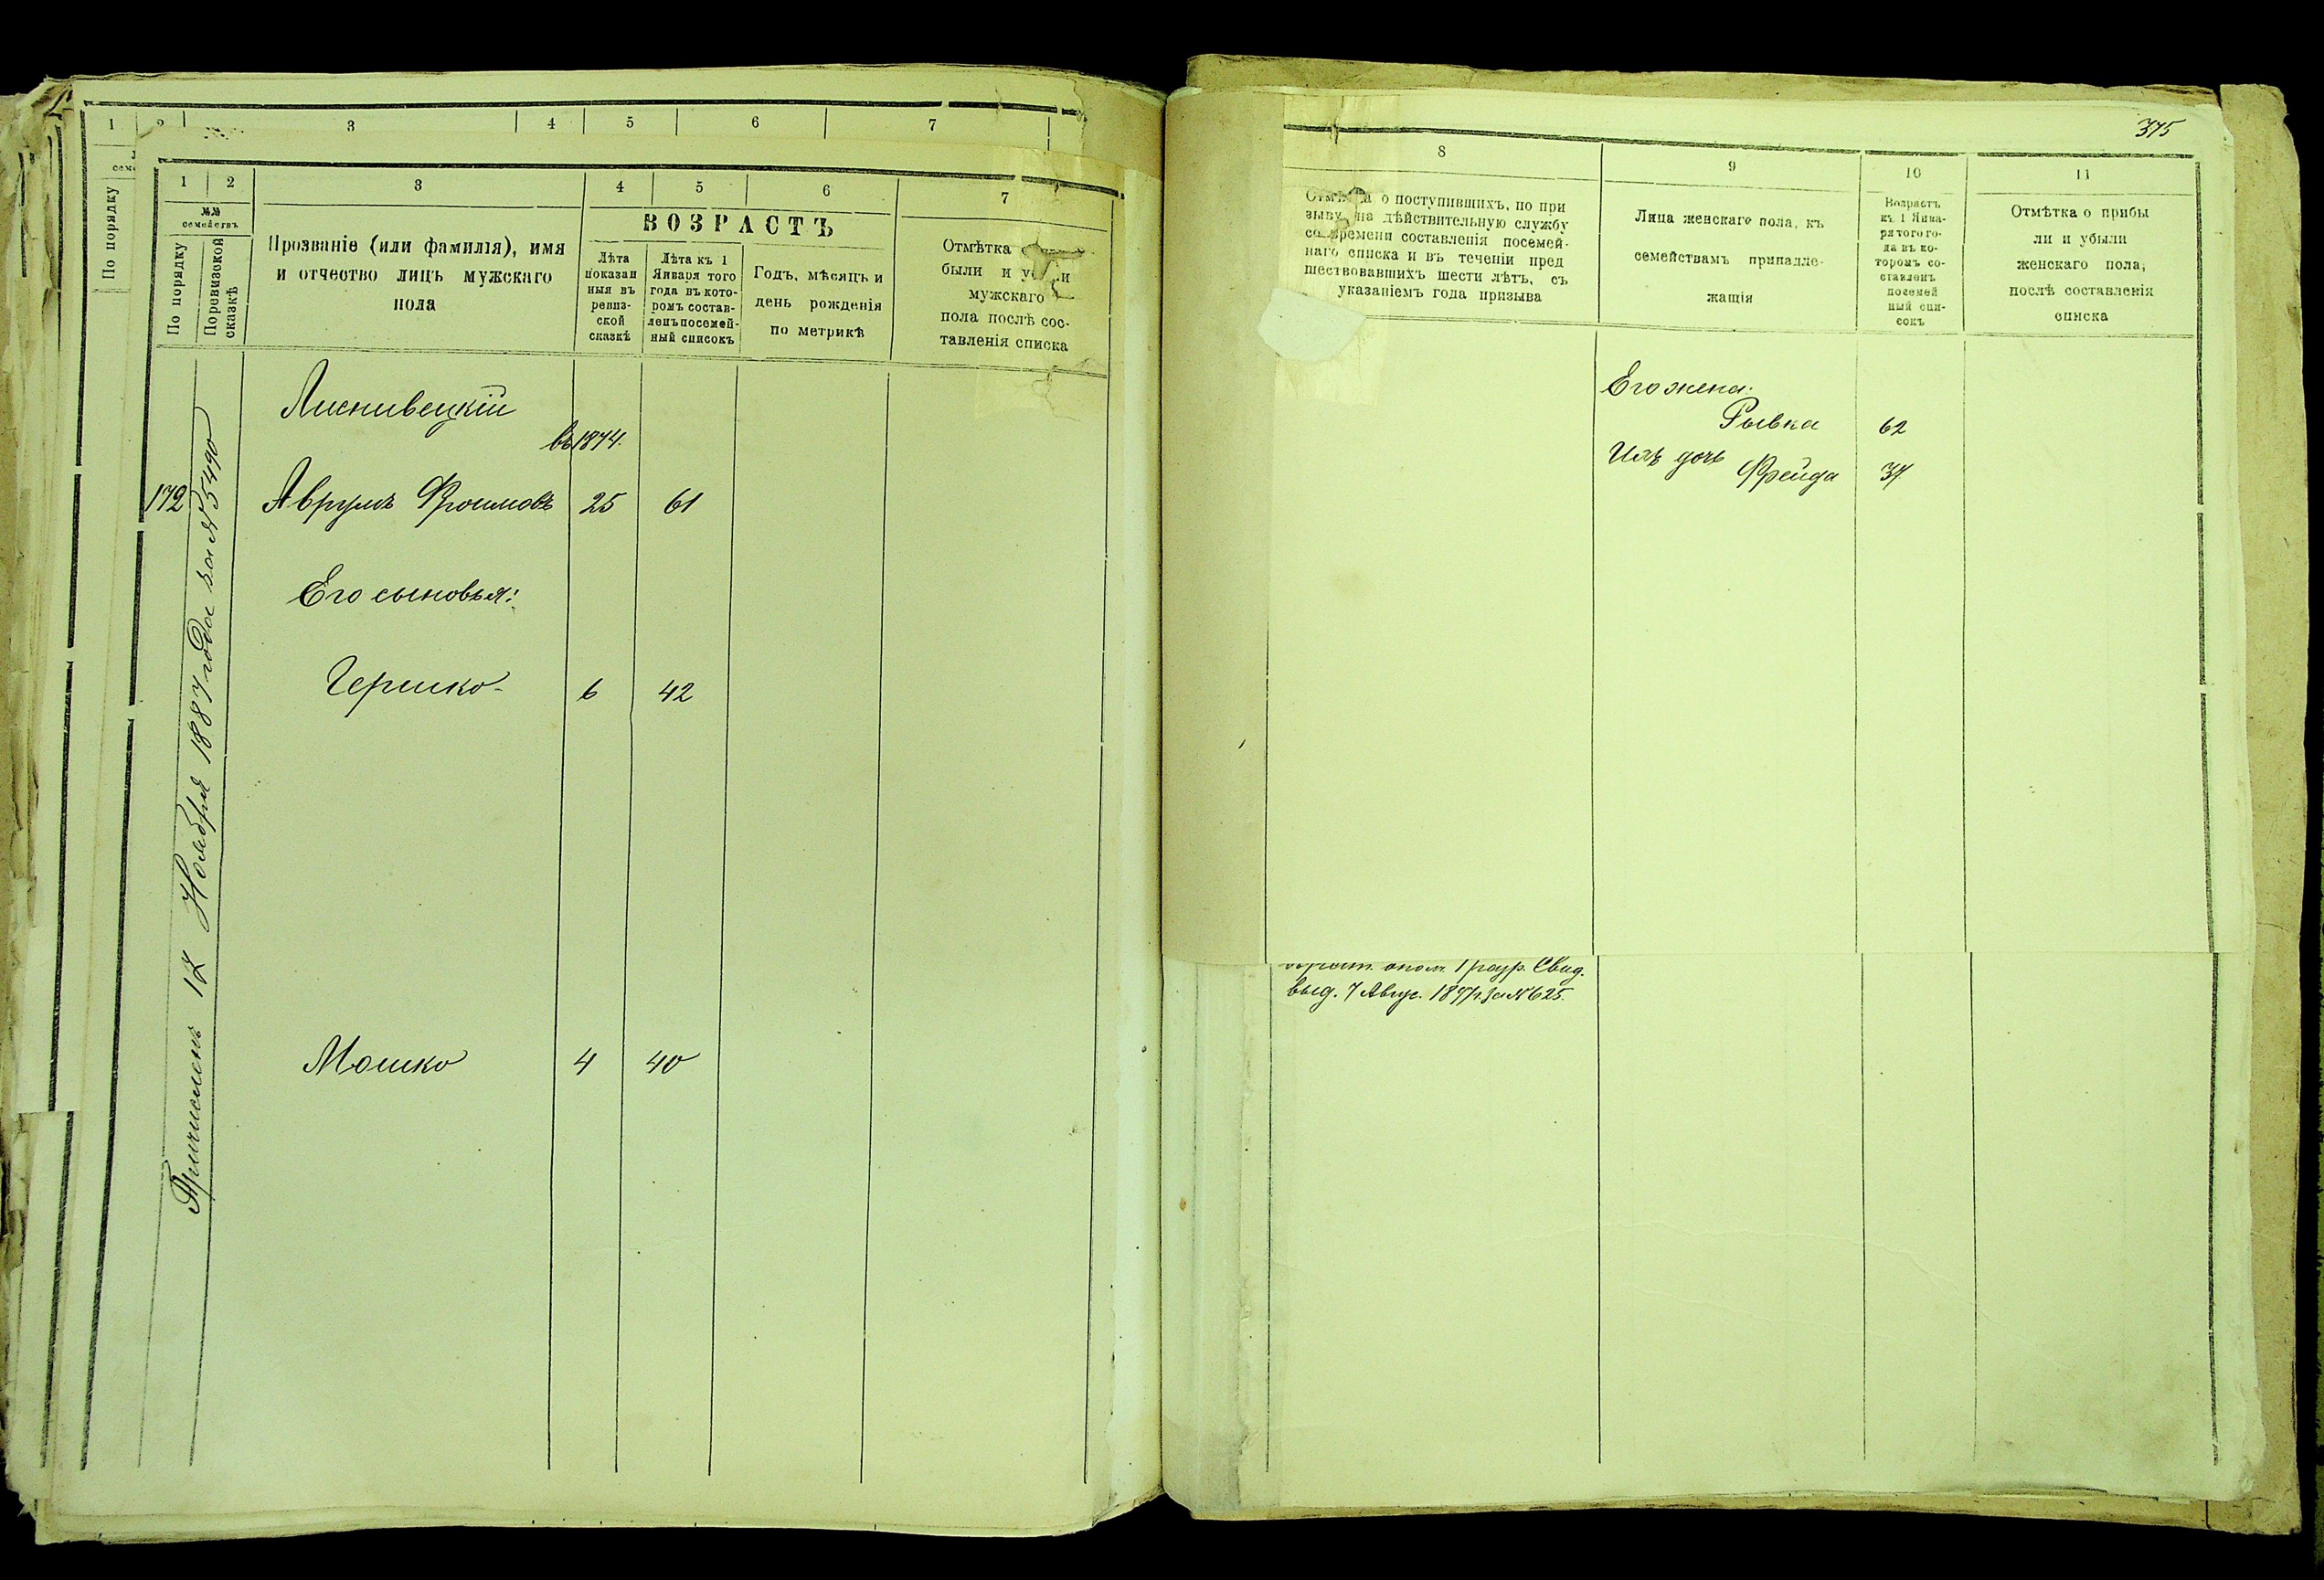 1 2 3 4 5 6 7
По порядку
1 2 3 4 5 6 7
№№
семействъ
По порядку
Поревизской
сказкѣ
Прозваніе (или фамилія), имя
и отчество лицъ мужскаго
пола
ВОЗРАСТЪ
Лѣта
показан
ныя въ
ревиз-
ской
сказкѣ
Лѣта къ 1
Января того
года въ кото-
ромъ состав-
ленъ посемей-
ный списокъ
Годъ, мѣсяцъ и
день рожденія
по метрикѣ
Отмѣтка
были и
мужскаго
пола послѣ сос-
тавленія списка
Лисниветцкій
въ 1874.
172 Аврумъ Фроимовъ 25 61
Его сыновья:
Гершко 6 42
Мошко 4 40
Причисленъ 12 Ноября 1887 года за № 5490
375
8 9 10 11
о поступившихъ, по при
зыву на дѣйствительную службу
со времени составленія посемей-
наго списка и въ теченіи пред
шествовавшихъ шести лѣтъ, съ
указаніемъ года призыва
Лица женскаго пола, къ
семействамъ принадле-
жащія
Возрастъ
къ 1 Янва-
ря того го-
да въ ко-
торомъ со-
ставленъ
посемей
ный спи-
сокъ
Отмѣтка о прибы
ли и убыли
женскаго пола,
послѣ составленія
списка
Его жена:
Рывка 62
Ихъ дочь
Фрейда 37
1 разр. Свид.
выд. 7 Авгус. 1877 г. за № 625.